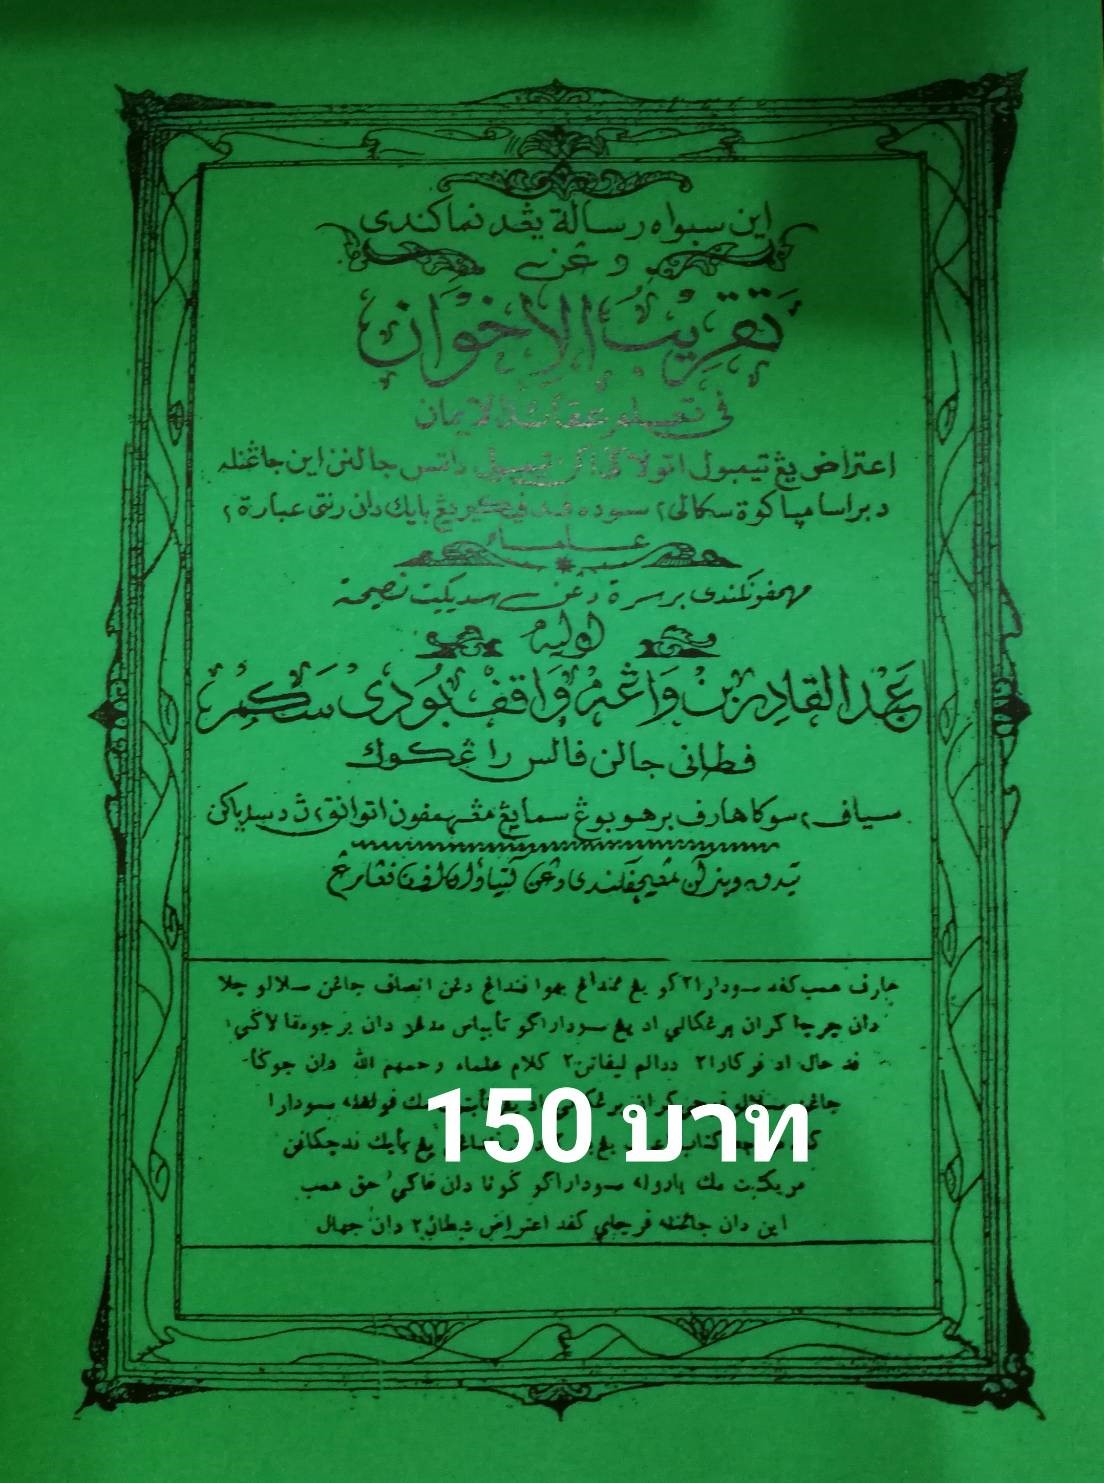 اين سبواه رسالة يڠد نماكندى
دڠن
تقريب الإخوان
فى تعليم عقائد الايمان
اعتراض يڠ تيمبول اتولاكى اكن تيمبول داتس جالنن اين جاڠنله
دبراسا مباكوة سكالى٢ سوده فد فيكير يڠ بايك دان رنتى عبارة٢
علماء
مهمفونكندى برسرة دڠن سديكيت نصيحة
اوليه
عبد القادر بن واڠه واقف بودى سكمر
فطانى جالن فالس راڠكوك
سياف٢ سوكا هارف برهوبوڠ سمايڠ مڠهمفون اتوانق٢ ڽ دسدياكن
تيدق دبنركن مڠيچفكندى دڠن
هارف همب كفد سودار٢١كو يڠ ممندڠ بهوا فندڠ دڠن انصاف جاڠن سلالو چلا
دان چرچا كران برڠكالي اد يڠ سوداراكو تأبياس مندڠر دان برجومفا لاڬي٢
فد حال اد فركارا٢ ددالم ليفاتن٢ كلام علماء رحمهم الله دان جوڬا
جاڠن سلالو
فولهله سودارا
كتاب
يڠ بايك
مريكئت مك باروله سوداراكو كوتا دان فاكي حق همب
اين دان جاڠنله فرچاي كفد اعتراض شيطان٢ دان جهال
150 บาท